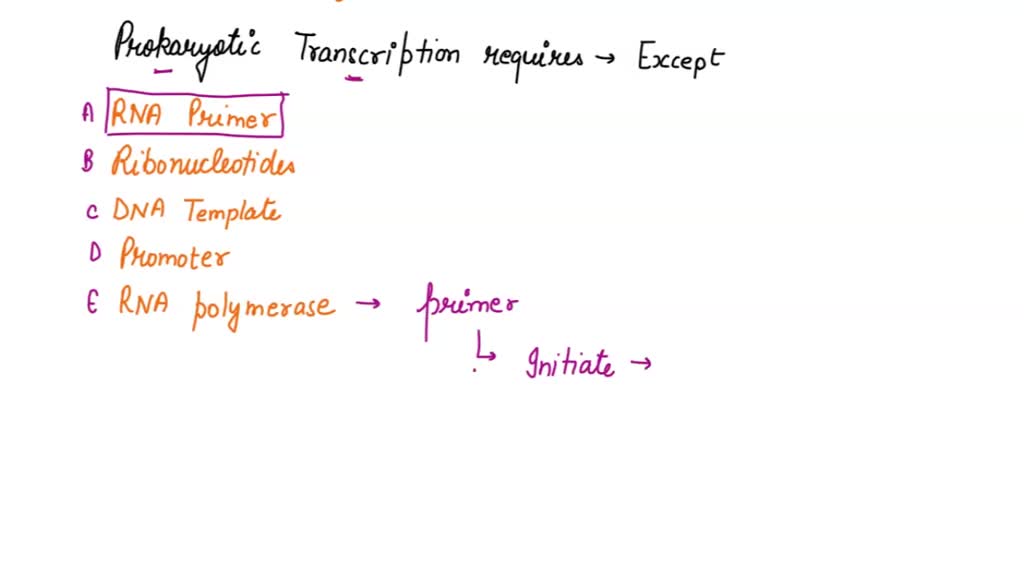 Prokaryotic Transcription requires → Except
A RNA Primer
B Ribonucleotides
C DNA Template
D Promoter
E RNA polymerase → primer
↳ Initiate →